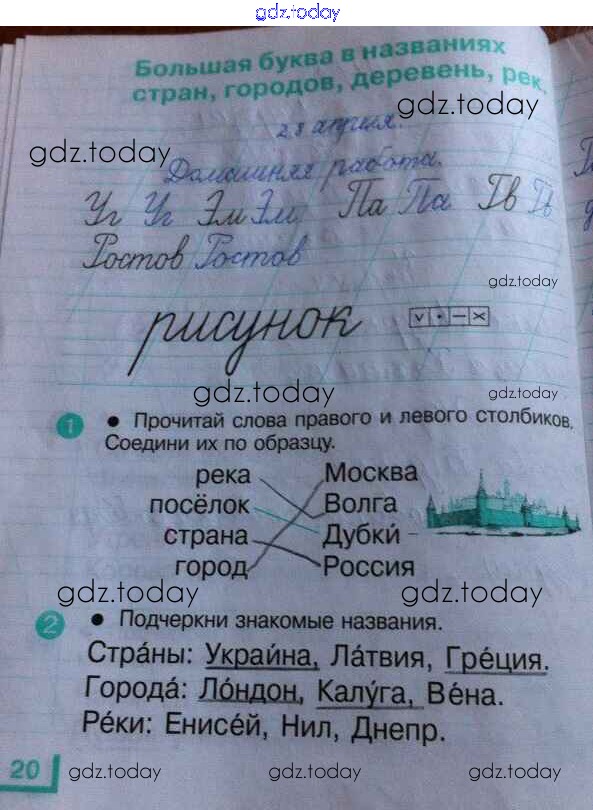 gdz.today
Большая буква в названиях
стран, городов, деревень, рек.
gdz.today
28 апреля.
gdz.today
Домашняя работа.
Уг Уг Эм Эм Па Па Тв Тв
Ростов Ростов
gdz.today
рисунок
gdz.today gdz.today
1 • Прочитай слова правого и левого столбиков.
Соедини их по образцу.
река Москва
посёлок Волга
страна Дубки́
город Россия
gdz.today gdz.today
2 • Подчеркни знакомые названия.
Стра́ны: Украи́на, Ла́твия, Гре́ция.
Города́: Ло́ндон, Калу́га, Ве́на.
Ре́ки: Енисе́й, Нил, Днепр.
20 gdz.today gdz.today gdz.today